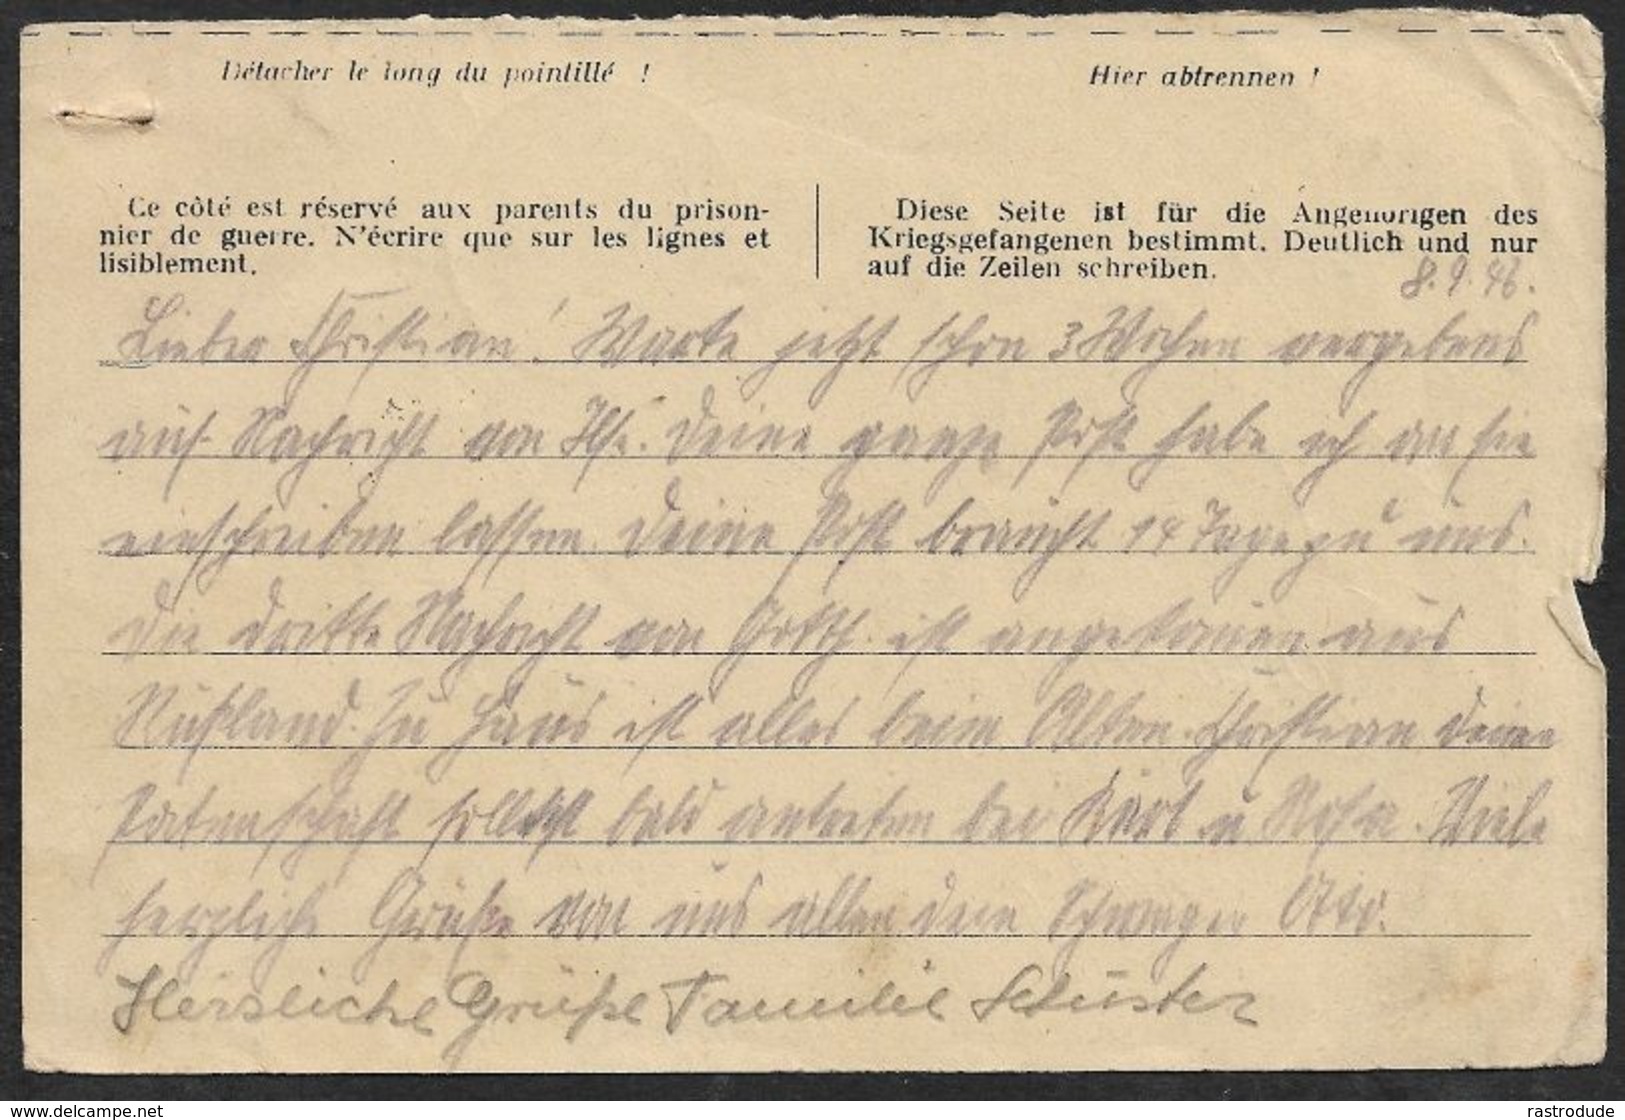 Détacher le long du pointillé !
Hier abtrennen !
Ce côté est réservé aux parents du prison-
nier de guerre. N'écrire que sur les lignes et
lisiblement.
Diese Seite ist für die Angehörigen des
Kriegsgefangenen bestimmt. Deutlich und nur
auf die Zeilen schreiben.
8.9.46.
Lieber Christian! Warte jetzt schon 3 Wochen vergebens
auf Nachricht von Ilse. Deine ganze Post habe ich an sie
einschreiben lassen. Deine Post braucht 14 Tage zu uns.
Die dritte Nachricht von ist angekommen aus
Rußland. Zu Haus ist alles beim Alten. Christian Deine
Patenschaft sollst bald antreten bei u Rosa. Viele
herzliche Grüße von uns allen dein Schwager
Herzliche Grüße Familie Schuster
www.delcampe.com
rastrodude